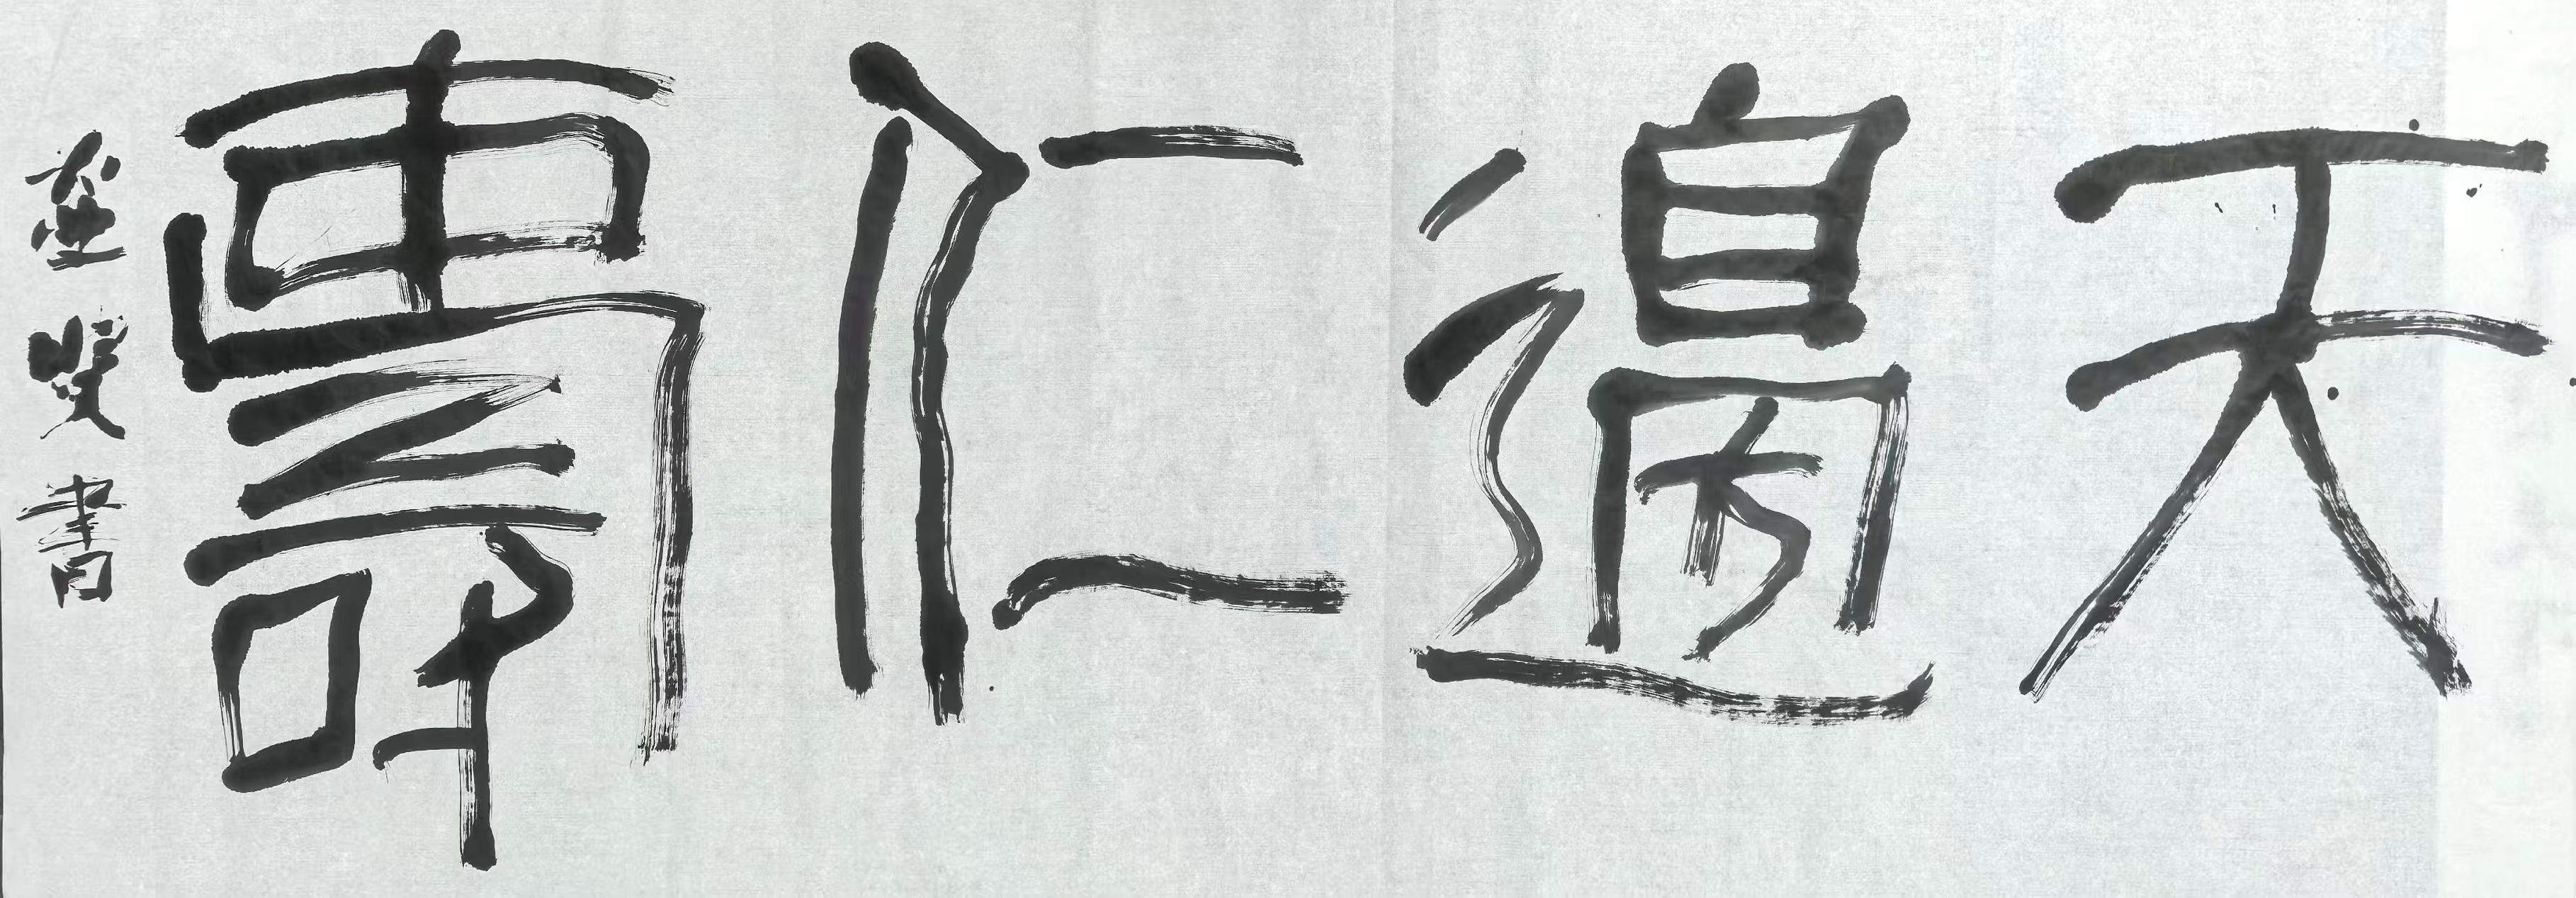 天邊仁壽
書